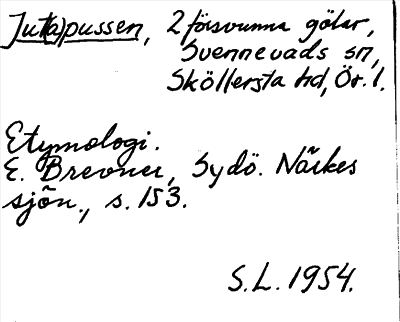 Jut(a)pussen, 2 försvunna gölar,
Svennevads sn,
Sköllersta hd, Ör. l.
Etymologi.
E. Brevner, Sydö. Närkes
sjön., s. 153.
S.L. 1954.